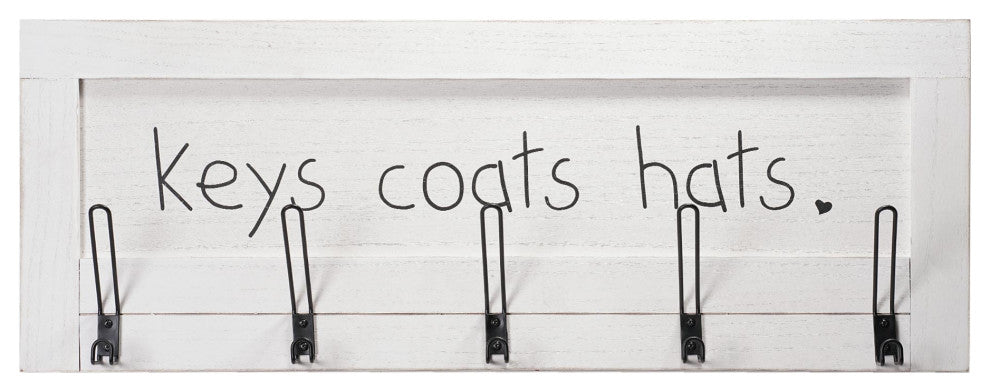 keys coats hats.